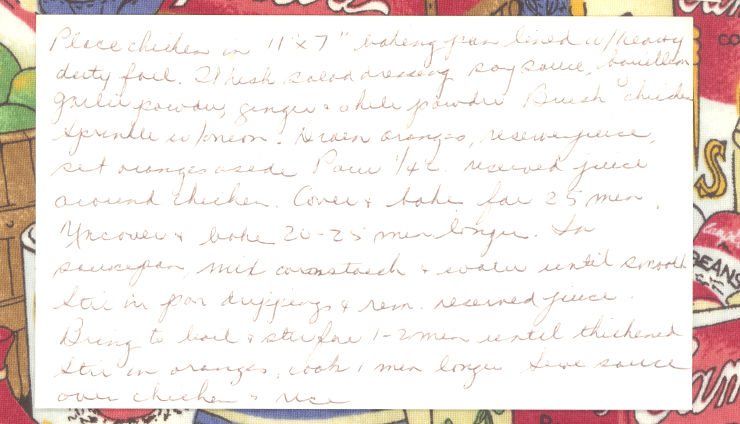 Place chicken in 11"x7" baking pan lined w/heavy
duty foil. Whisk salad dressing soy sauce, bouillon
garlic powder, ginger & chile powder Brush chicken
Sprinkle w/onion. Drain oranges, reserve juice,
set oranges aside Pour 1/4 c. reserved juice
around chicken. Cover & bake for 25 min.
Uncover & bake 20-25 min longer. In
saucepan, mix cornstarch & water until smooth
Stir in pan drippings & rem. reserved juice.
Bring to boil & stir for 1-2 min until thickened
Stir in oranges, cook 1 min longer Serve sauce
over chicken & rice
CO
S
BEANS